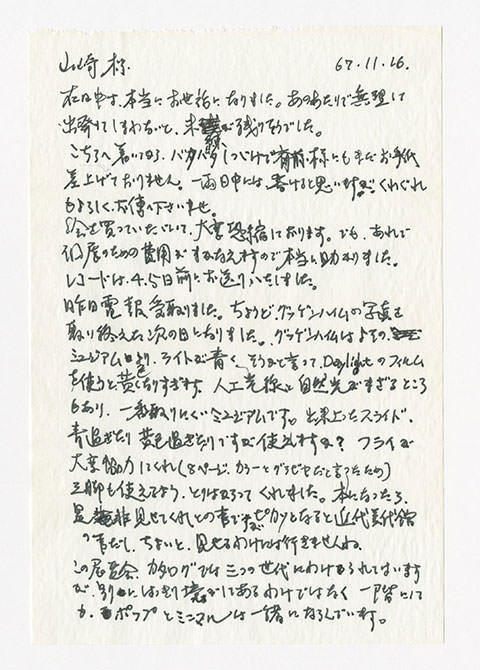 山崎様 67.11.16.
在日中は、本当にお世話になりました。あのあたりで無理して
出発してしまわないと、未練が残りそうでした。
こちらへ着いてから、バタバタしつづけで 様にもまだお手紙
差上げておりません。一両日中には書けると思いますが、くれぐれ
もよろしくお傳え下さいませ。
絵を買っていただいて、大変恐縮しております。でも、あれで
個展のための費用がまかなえますので本当に助かりました。
レコードは、4.5日前にお送りいたしました。
昨日電報受取りました。ちょうど、グッゲンハイムの写真を
取り終えた次の日となりました。グッゲンハイムはよその
ミュジアムより、ライトが青く、そうかと言って、Daylightのフィルム
を使うと黄色くなりすぎます。人工光線と自然光がまざるところ
もあり、一番取りにくいミュジアムです。出来上ったスライド、
青過ぎたり黄色過ぎたりですが使えますか? フライが
大変協力してくれ(8ページ、カラーとグラビヤだと言ったため)
三脚も使えるよう、とりはからってくれました。本になったら、
是非見せてくれとの事ですが、ピカッとなると近代美術館
の事だし、ちょいと、見せるわけには行きませんね。
この展覧会、カタログでは三つの世代にわけられてはいます
が、別にはっきり境がしてあるわけではなく、一階にして
も、ポップとミニマルは一緒にならんでいます。